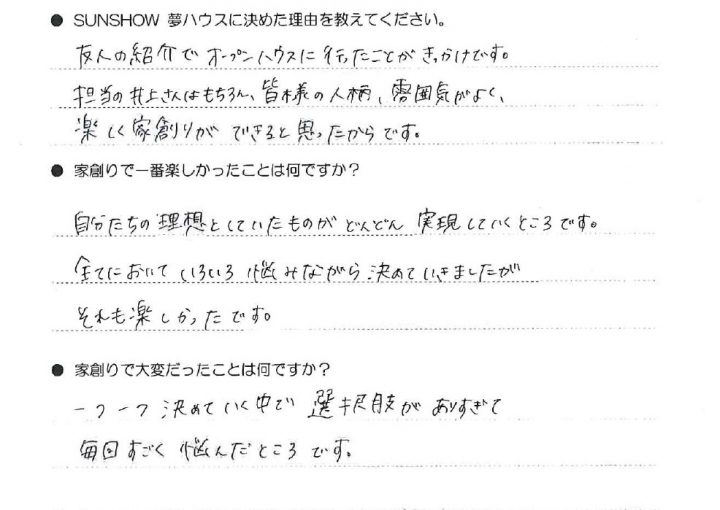 ● SUNSHOW 夢ハウスに決めた理由を教えてください。
友人の紹介でオープンハウスに行ったことがきっかけです。
担当の井上さんはもちろん、皆様の人柄、雰囲気がよく、
楽しく家創りができると思ったからです。
● 家創りで一番楽しかったことは何ですか？
自分たちの理想としていたものがどんどん実現していくところです。
全てにおいていろいろ悩みながら決めていきましたが
それも楽しかったです。
● 家創りで大変だったことは何ですか？
一つ一つ決めていく中で選択肢がありすぎて
毎回すごく悩んだところです。